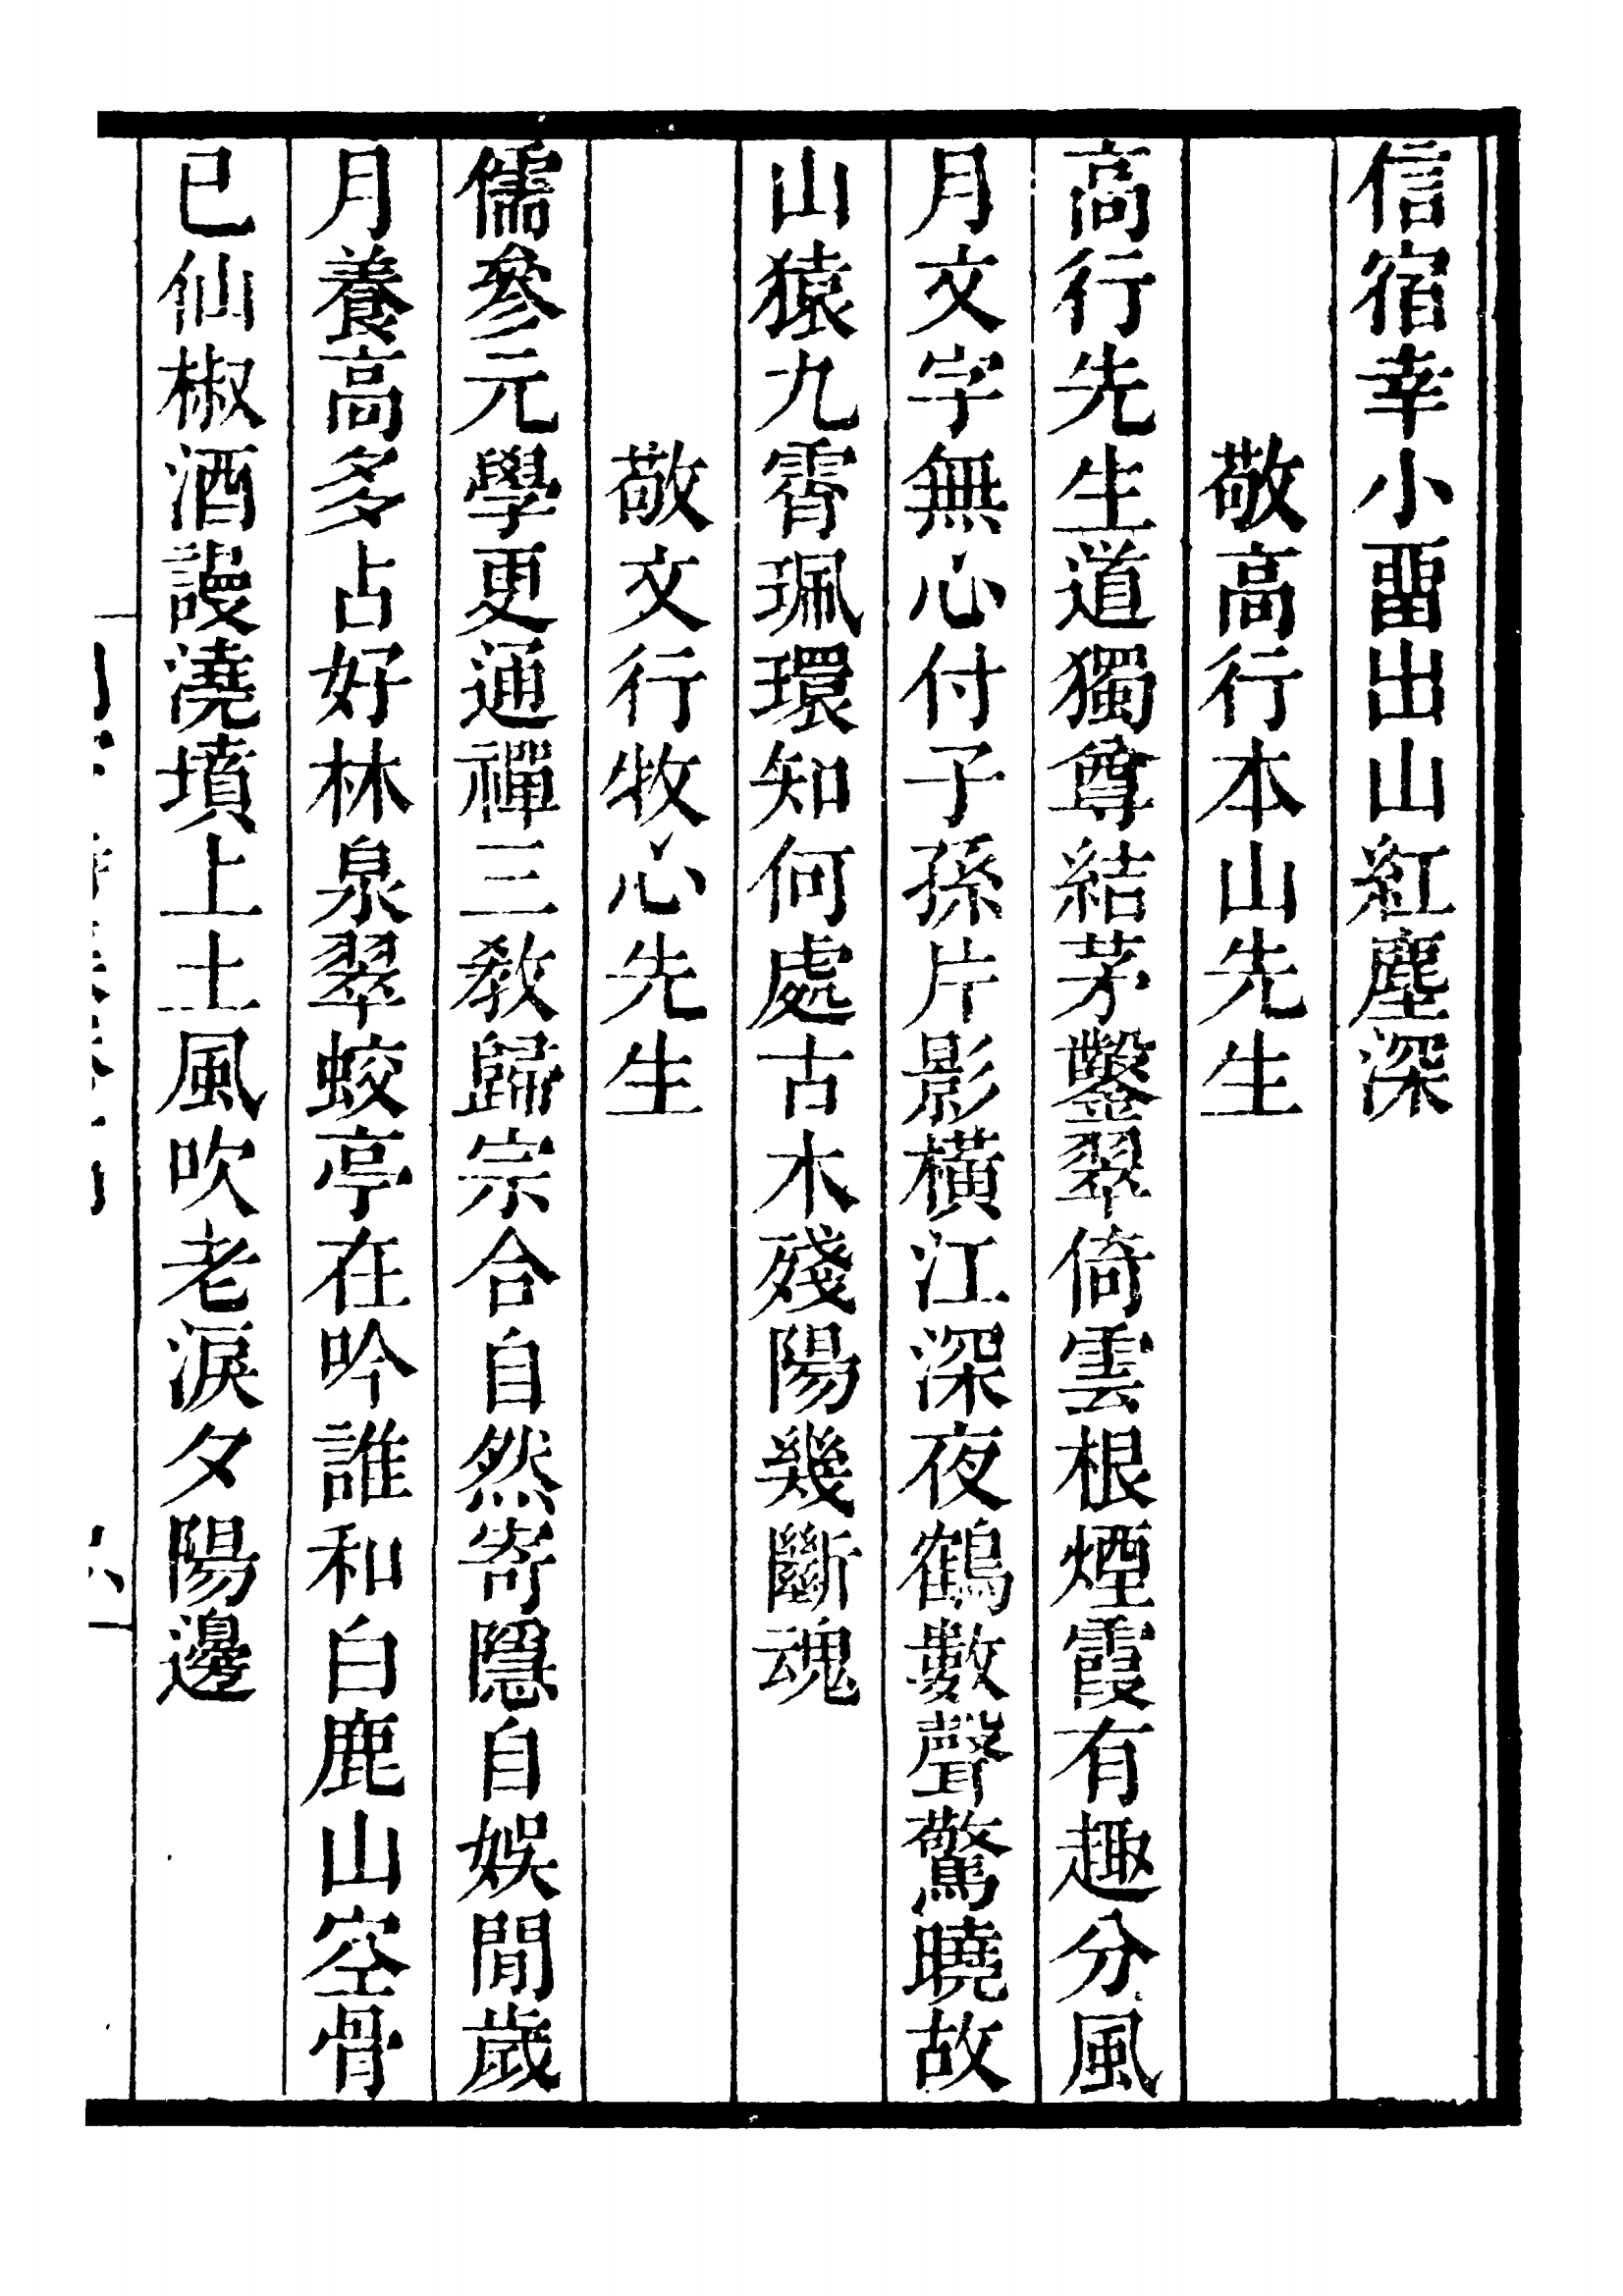 信宿幸小畱出山紅塵深
敬高行本山先生
高行先生道獨尊結茅鑿翠倚雲根煙霞有趣分風
月文字無心付子孫片影橫江深夜鶴數聲驚曉故
山猿九霄珮環知何處古木殘陽幾斷魂
敬文行牧心先生
儒參元學更通禪三敎歸宗合自然寄隱自娛閒歲
月養高多占好林泉翠蛟亭在吟誰和白鹿山空骨
已仙椒酒謾澆墳上土風吹老淚夕陽邊